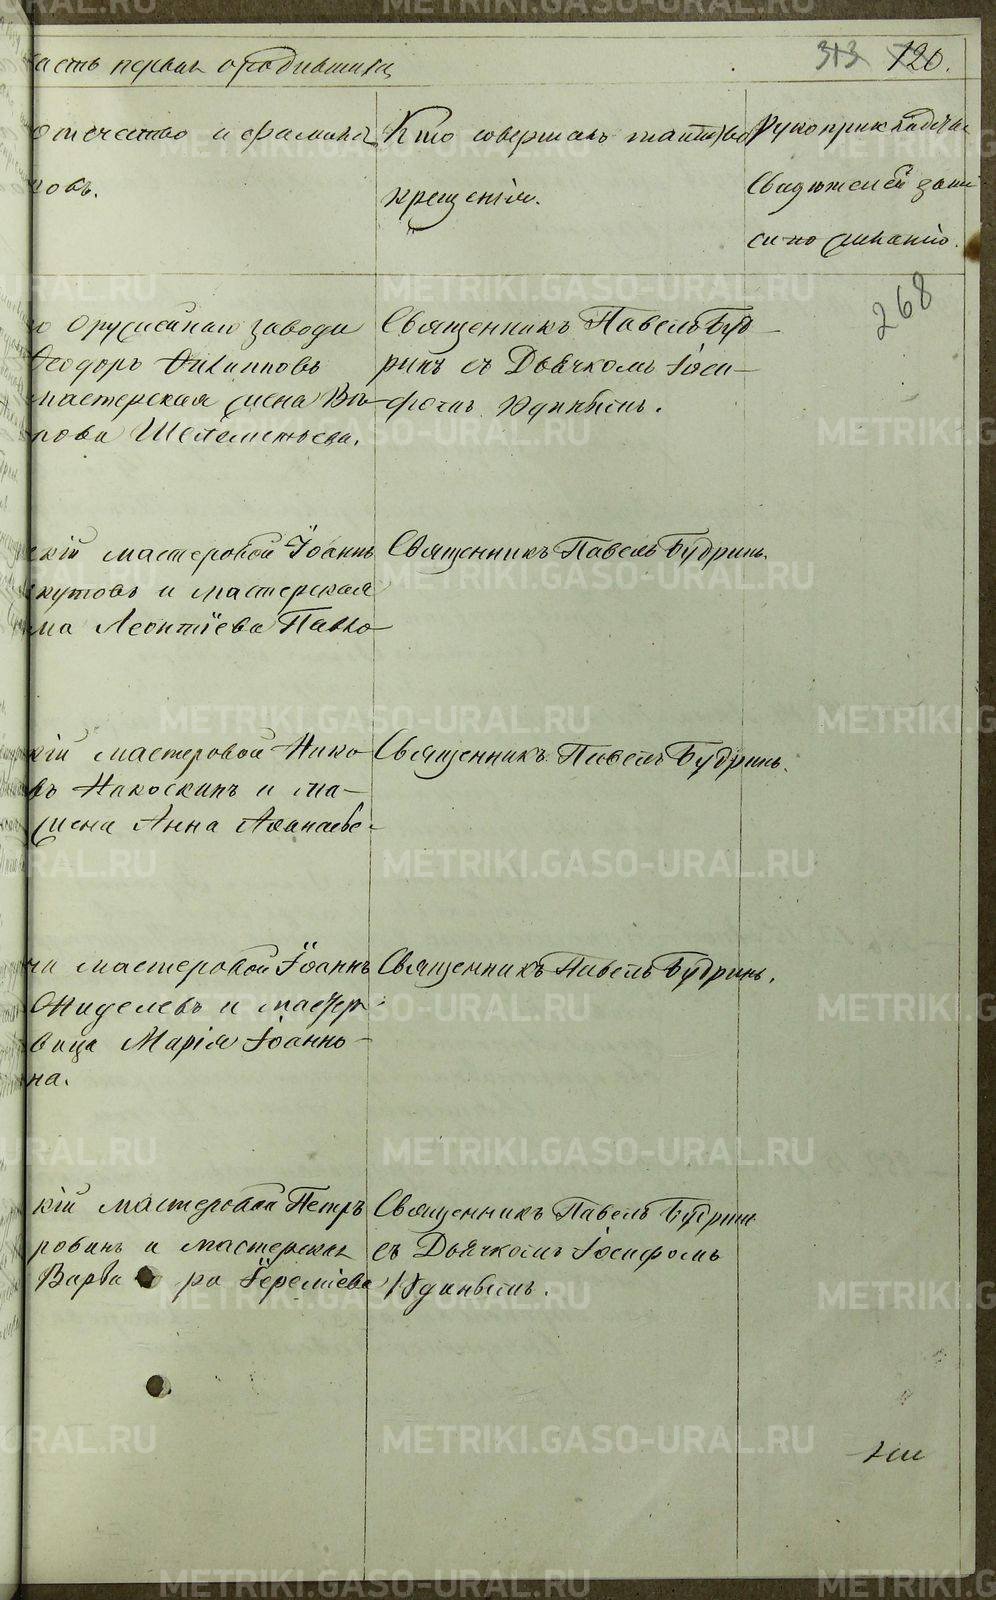 асть первая о родившихся
313 120.
отчество и фамилія
ковъ.
Кто совершалъ таинство
крещенія.
Рукоприкладство
свидѣтелей запи
си по желанію.
268
Оружейнаго завода
Ѳеодоръ Филипповъ
мастерская жена Вѣ
рова Шелементьева.
Священникъ Павелъ Буд
ринъ съ Дьячкомъ Іоси
фомъ
скій мастеровой Іоаннъ
кутовъ и мастерская
ма Леонтіева Павло
Священникъ Павелъ Будринъ.
кій мастеровой Нико
въ Накоскинъ и ма
жена Анна Аѳанасье
Священникъ Павелъ Будринъ.
мастеровой Іоаннъ
и мастер
вица Марія Іоанно
на.
Священникъ Павелъ Будринъ.
кій мастеровой Петръ
ровинъ и мастерская
Варва ра Іереміева
Священникъ Павелъ Будринъ
съ Дьячкомъ Іосифомъ
METRIKI.GASO-URAL.RU